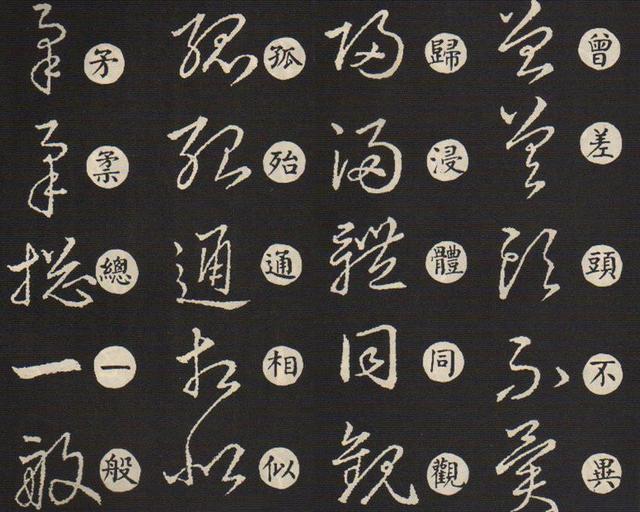 曾差頭不異
歸浸體同觀
孤殆通相似
矛柔總一般